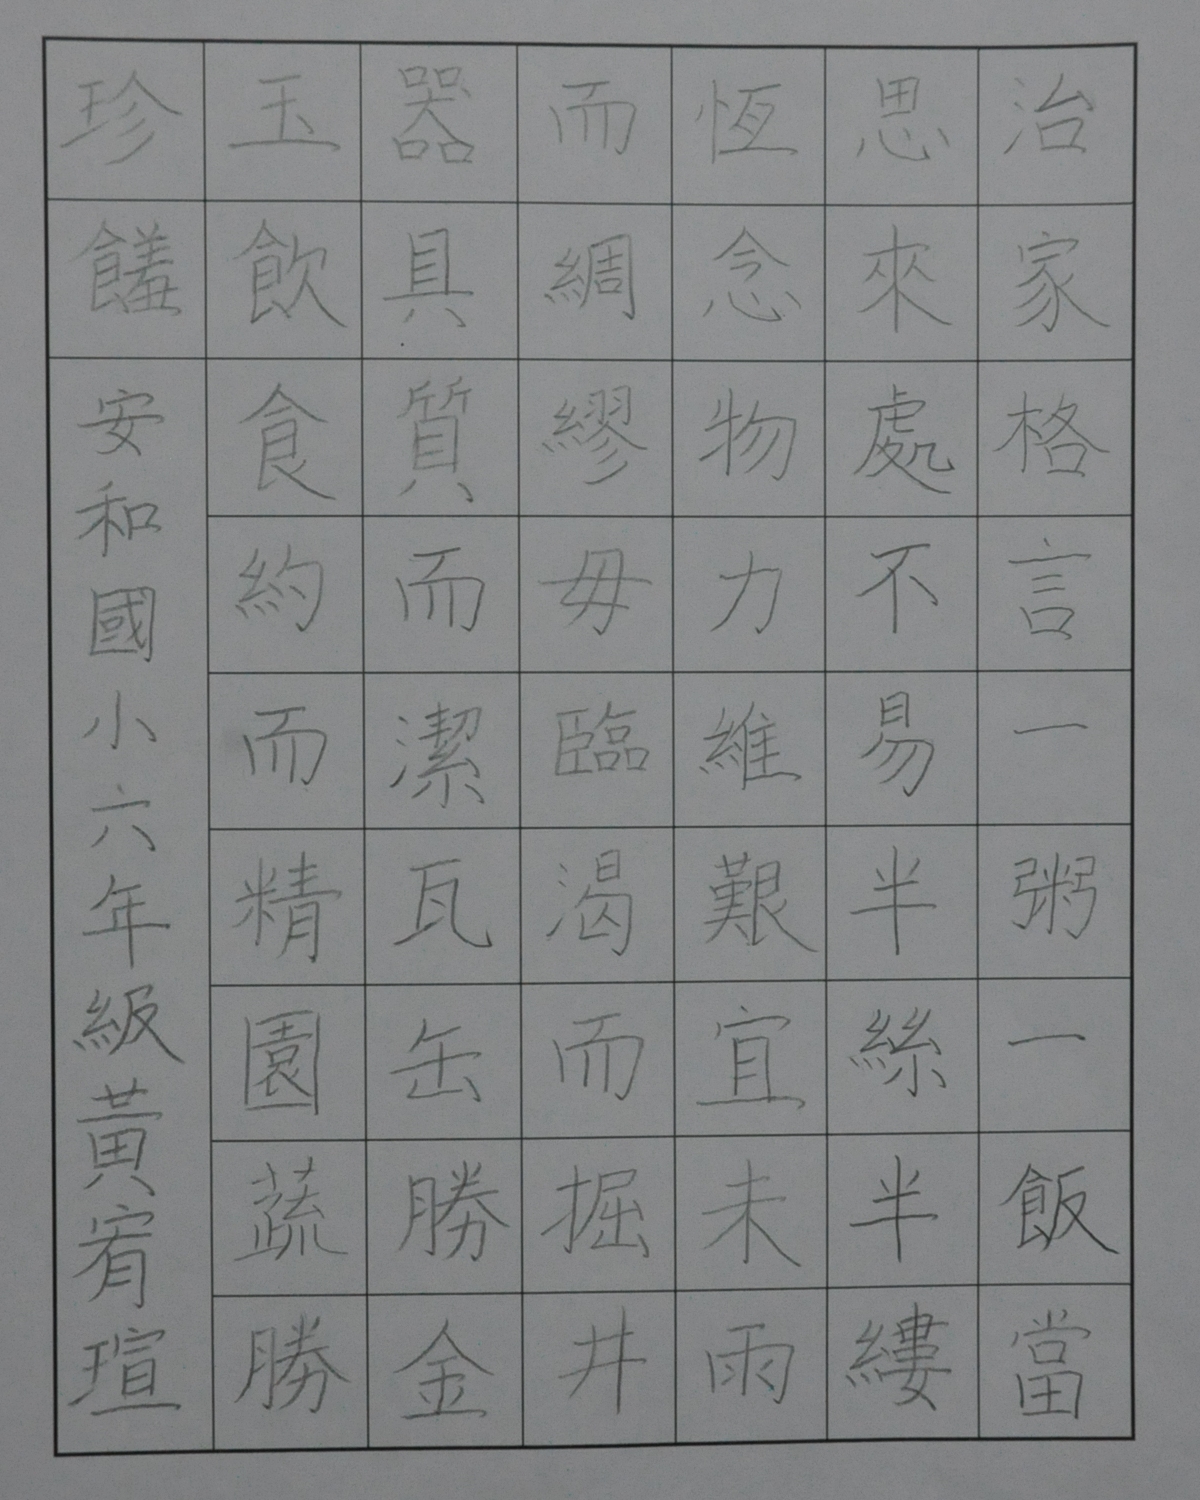 治家格言一粥一飯當
思來處不易半絲半縷
恆念物力維艱宜未雨
而綢繆毋臨渴而掘井
器具質而潔瓦缶勝金
玉飲食約而精園蔬勝
珍饈
安和國小六年級黃宥瑄